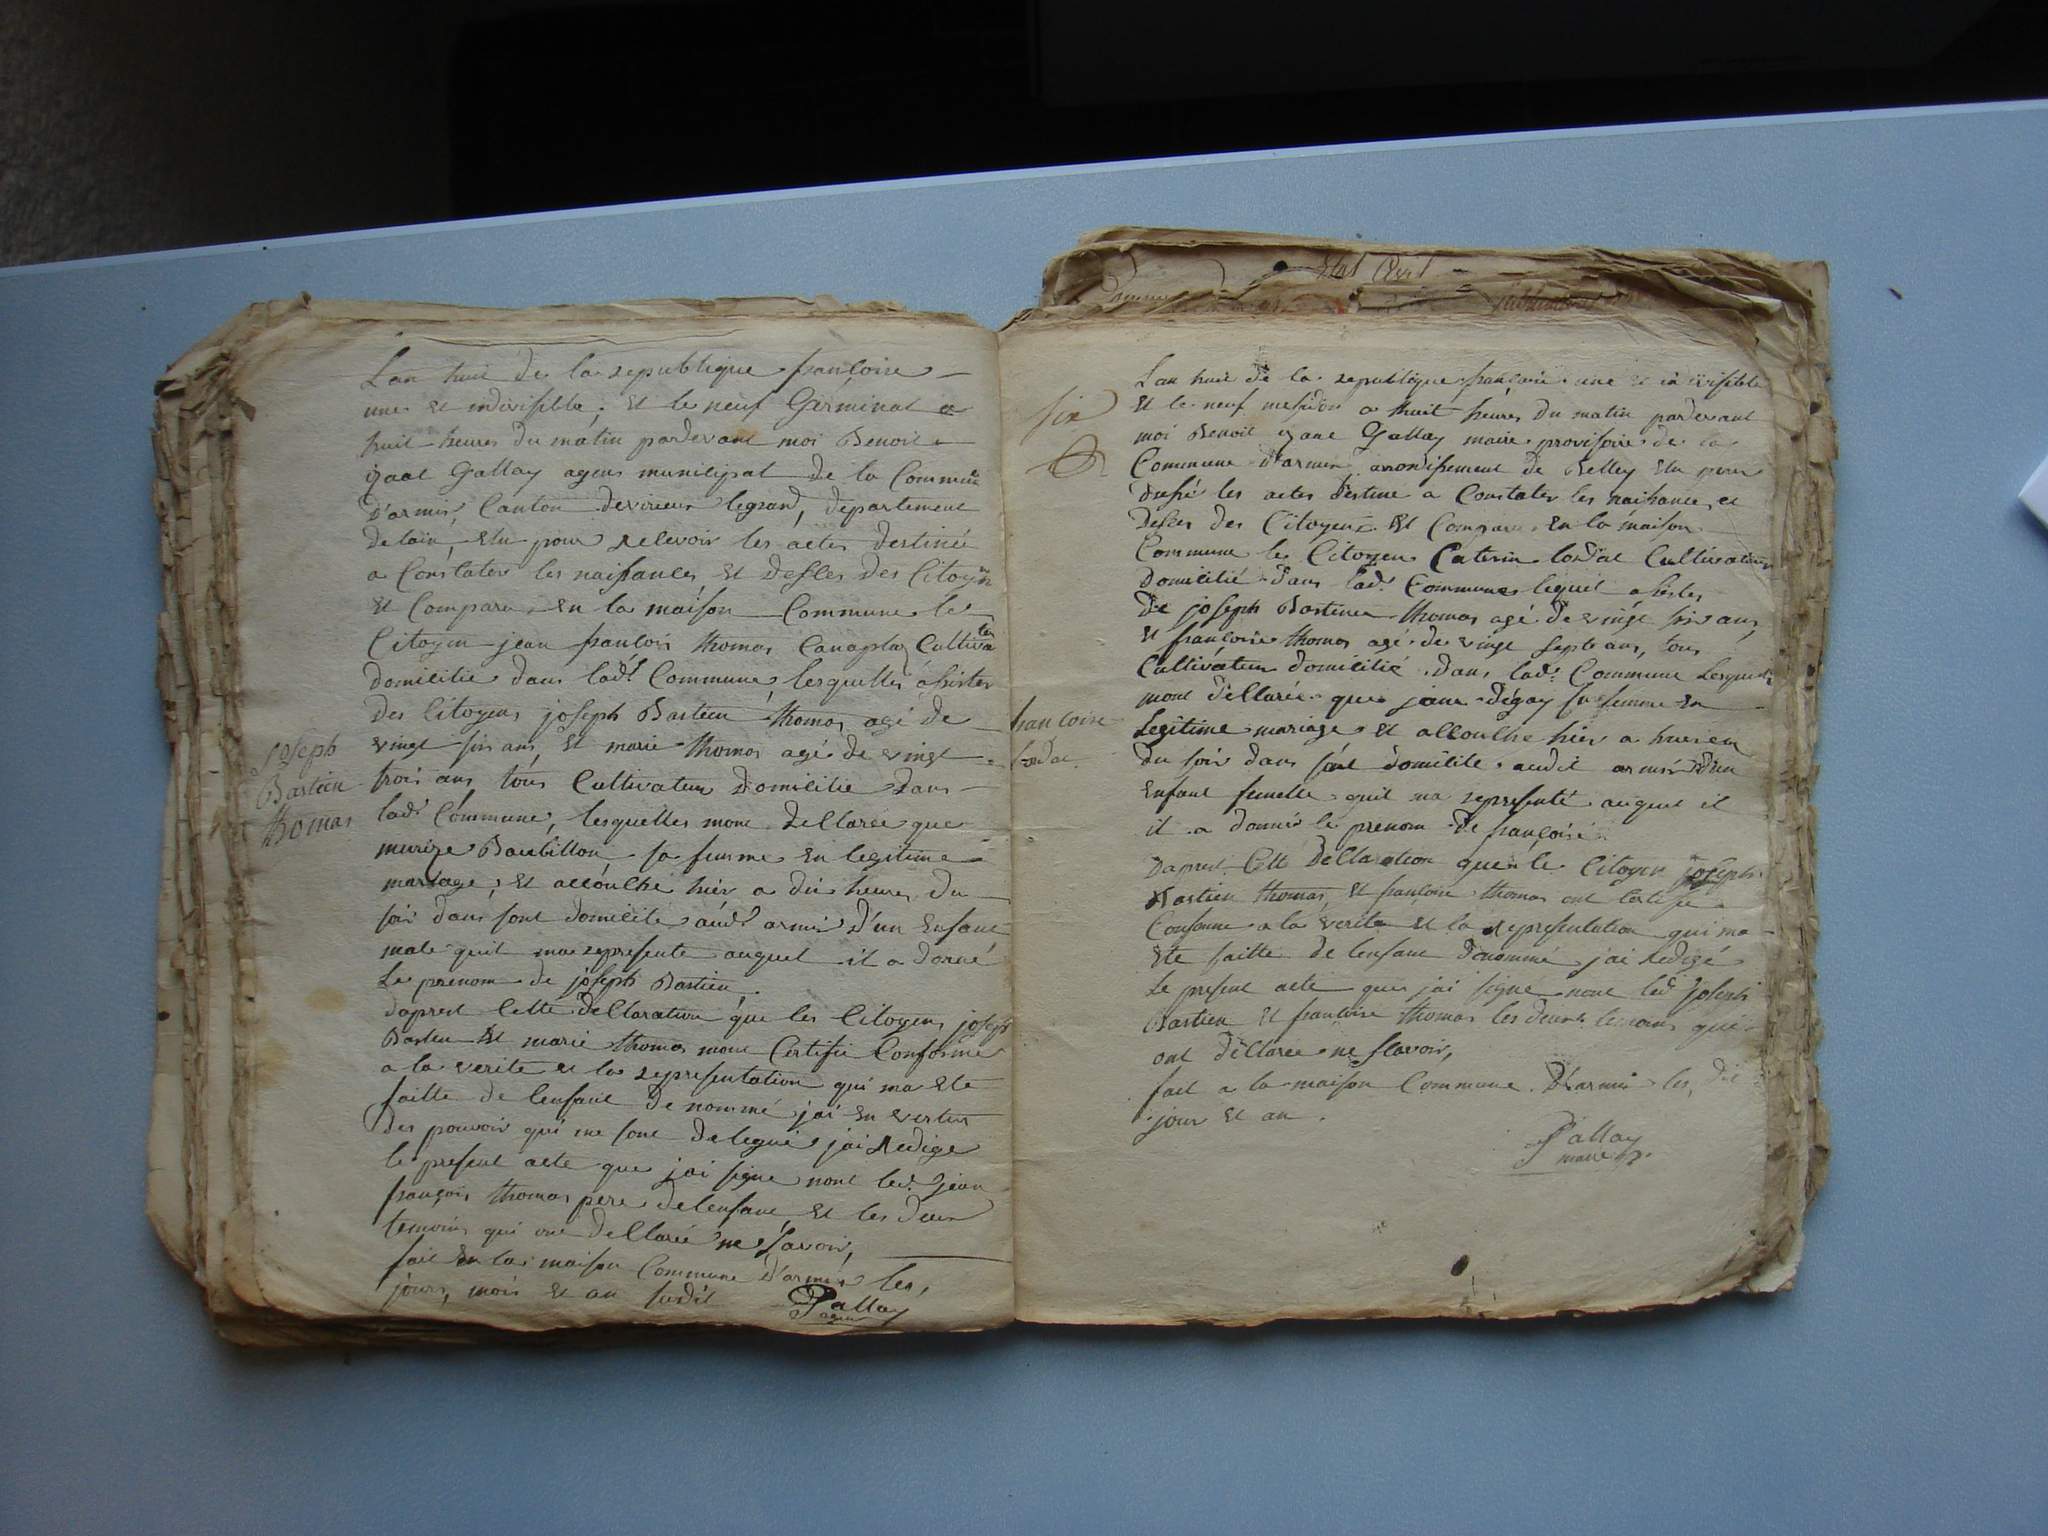 Lan huit de la republique francoise
une et indivisible, et le neuf Germinal a
huit heures du matin pardevant moi Benoit
izaac Gallay agent municipal de la Commune
D'armix, Canton devirieux legrand, departement
delain, elu pour recevoir les actes destiné
a Constater les naissances et desces des Citoyen
et Comparu en la maison Commune le
Citoyen jean francois thomas Cultiva
domicilié dans lad.t Commune, lesquelles assister
des Citoyens joseph Bastien thomas agé de
vingt six ans, et marie thomas agé de vingt
joseph
Bastien
thomas
trois ans, tous Cultivateur domicilié dans
lad.t Commune, lesquelles mont declarée que
Barbillon, sa femme en legitime
mariage, et accouché hier a dix heures du
soir dans sont domicile aud.t armix d'un enfant
male quil ma representé auquel il a donné
Le prenom de joseph Bastien.
daprest cette declaration que les Citoyens joseph
Bastien et marie thomas mont Certifié Conforme
a la verité et la representation qui ma eté
faitte de lenfant denommé jai en vertus
des pouvoir qui me sont delegué jai redigé
le present acte que jai signé nont led.t jean
françois thomas pere delenfant et les deux
temoins qui ont declaré ne savoir,
fait en la maison Commune d'armix les,
jours, mois et an susdit
Gallay
agent
Etat Civil
six
Lan huit de la republique francoise une et indivisible
Et le neuf mesidor a huit heures du matin pardevant
moi Benoit izaac Gallay maire provisoire de la
Commune d'armix arondissement de Belley elu pour
les actes destiné a Constater les naissances et
desces des Citoyens et Comparu en la maison
Commune le Citoyen Caterin Cultivateur
domicilié dans lad.t Commune lequel assistes
De joseph Bastien thomas agé de vingt six ans,
et françoise thomas agé de vingt sept ans, tous
Cultivateur domicilié dans lad.t Commune Lesquels
mont declarée que sa femme en
francoise
Legitime mariage et accouché hier a
du soir dans sont domicile audit armix d'un
enfant femelle quil ma representé auquel il
il a donné le prenom de françoise.
Daprest Cette declaration que le Citoyen joseph
Bastien thomas, et françoise thomas ont certifié
Conforme a la verité et la representation qui ma
ete faitte de lenfant denommé jai redigé
Le present acte que jai signé nont led.t joseph
Bastien et francoise thomas les deux temoins qui
ont declarée ne savoir,
fait a la maison Commune D'armix les, dit
jour et an.
Gallay
maire